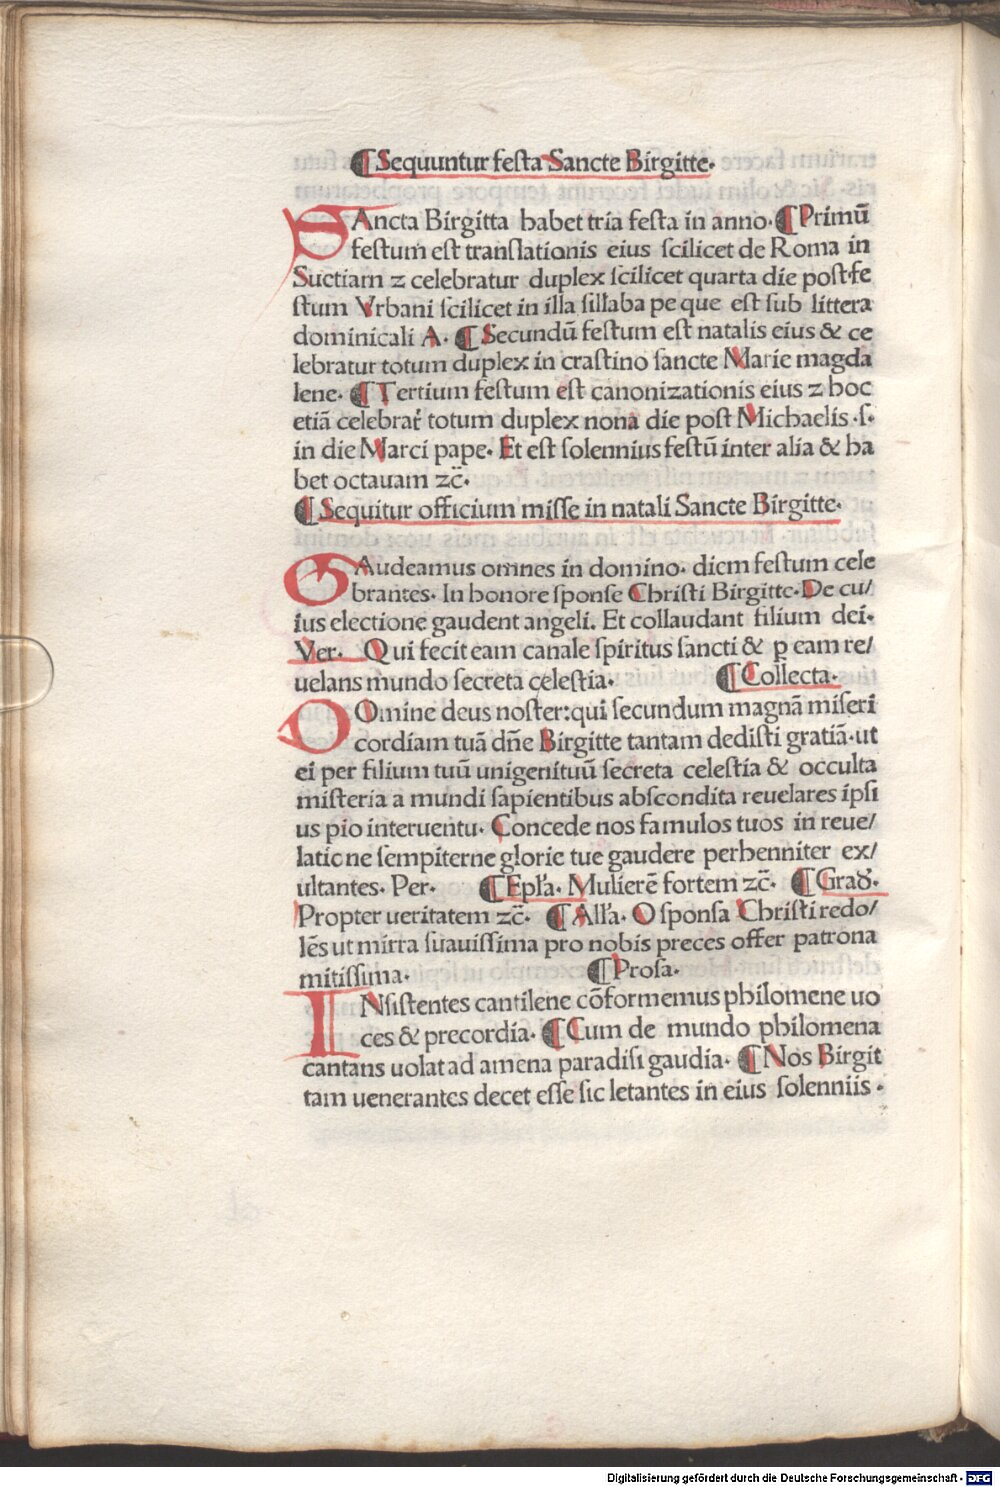 ¶ Sequuntur festa Sancte Birgitte.
SAncta Birgitta habet tria festa in anno. ¶ Primū
festum est translationis eius scilicet de Roma in
Suetiam ⁊ celebratur duplex scilicet quarta die post fe
stum Vrbani scilicet in illa sillaba pe que est sub littera
dominicali A. ¶ Secundū festum est natalis eius & ce
lebratur totum duplex in crastino sancte Marie magda
lene. ¶ Tertium festum est canonizationis eius ⁊ hoc
etiā celebrat̄ totum duplex nona die post Michaelis .s.
in die Marci pape. Et est solennius festū inter alia & ha
bet octauam ⁊c̄.
¶ Sequitur officium misse in natali Sancte Birgitte.
GAudeamus omnes in domino. diem festum cele
brantes. In honore sponse Christi Birgitte. De cu/
ius electione gaudent angeli. Et collaudant filium dei.
Ver. Qui fecit eam canale spiritus sancti & p eam re/
uelans mundo secreta celestia. ¶ Collecta.
DOmine deus noster: qui secundum magnā miseri
cordiam tuā dn̄e Birgitte tantam dedisti gratiā. ut
ei per filium tuū unigenituū secreta celestia & occulta
misteria a mundi sapientibus abscondita reuelares ipsi
us pio interuentu. Concede nos famulos tuos in reue/
latione sempiterne glorie tue gaudere perhenniter ex/
ultantes. Per. ¶ Epl'a. Mulierē fortem ⁊c̄. ¶ Grad̄.
Propter ueritatem ⁊c̄. ¶ All'a. O sponsa Christi redo/
lēs ut mirra suauissima pro nobis preces offer patrona
mitissima. ¶ Prosa.
INsistentes cantilene cōformemus philomene uo
ces & precordia. ¶ Cum de mundo philomena
cantans uolat ad amena paradisi gaudia. ¶ Nos Birgit
tam uenerantes decet esse sic letantes in eius solenniis.
Digitalisierung gefördert durch die Deutsche Forschungsgemeinschaft - DFG